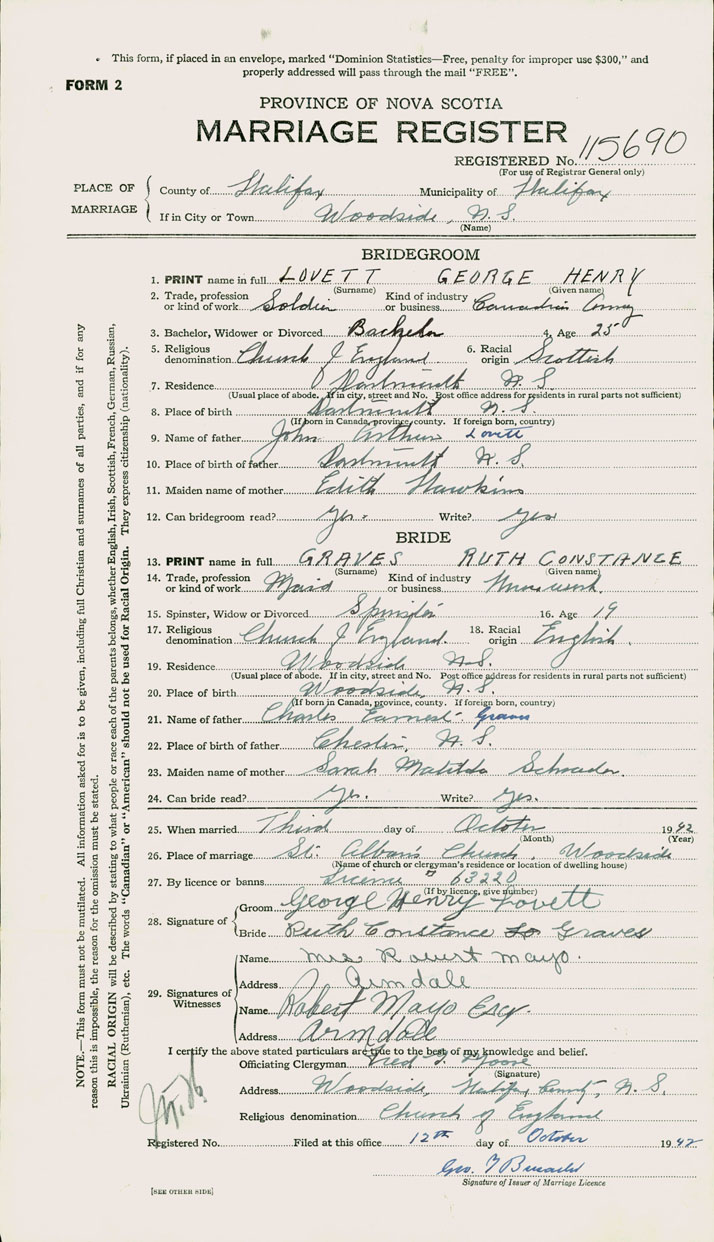 This form, if placed in an envelope, marked "Dominion Statistics—Free, penalty for improper use $300," and
properly addressed will pass through the mail "FREE".
FORM 2
PROVINCE OF NOVA SCOTIA
MARRIAGE REGISTER
REGISTERED No. 115690
(For use of Registrar General only)
PLACE OF MARRIAGE
County of Halifax Municipality of Halifax
If in City or Town Woodside, N. S.
(Name)
BRIDEGROOM
1. PRINT name in full LOVETT GEORGE HENRY
(Surname) (Given name)
2. Trade, profession or kind of work Soldier Kind of industry or business Canadian Army
3. Bachelor, Widower or Divorced Bachelor 4. Age 25
5. Religious denomination Church of England 6. Racial origin Scottish
7. Residence Dartmouth N. S.
(Usual place of abode. If in city, street and No. Post office address for residents in rural parts not sufficient)
8. Place of birth Dartmouth N. S.
(If born in Canada, province, county. If foreign born, country)
9. Name of father John Arthur Lovett
10. Place of birth of father Dartmouth N. S.
11. Maiden name of mother Edith Hawkins
12. Can bridegroom read? yes. Write? yes
BRIDE
13. PRINT name in full GRAVES RUTH CONSTANCE
(Surname) (Given name)
14. Trade, profession or kind of work Maid Kind of industry or business
15. Spinster, Widow or Divorced Spinster 16. Age 19
17. Religious denomination Church of England. 18. Racial origin English.
19. Residence Woodside N.S.
(Usual place of abode. If in city, street and No. Post office address for residents in rural parts not sufficient)
20. Place of birth Woodside, N. S.
(If born in Canada, province, county. If foreign born, country)
21. Name of father Charles Earnest Graves
22. Place of birth of father Chester, N. S.
23. Maiden name of mother Sarah Matilda Schrader.
24. Can bride read? Yes. Write? Yes.
25. When married Third day of October 1942
(Month) (Year)
26. Place of marriage St. Alban's Church, Woodside
(Name of church or clergyman's residence or location of dwelling house)
27. By licence or banns Licence 63220
(If by licence, give number)
28. Signature of Groom George Henry Lovett
Bride Ruth Constance Graves
29. Signatures of Witnesses
Name Mrs Robert Mayo.
Address Armdale
Name Robert Mayo Esq.
Address Armdale
I certify the above stated particulars are true to the best of my knowledge and belief.
Officiating Clergyman Fred
(Signature)
Address Woodside, Halifax County, N. S.
Religious denomination Church of England
Registered No. Filed at this office 12th day of October 1942
Geo.
Signature of Issuer of Marriage Licence
[SEE OTHER SIDE]
NOTE.—This form must not be mutilated. All information asked for is to be given, including full Christian and surnames of all parties, and if for any
reason this is impossible, the reason for the omission must be stated.
RACIAL ORIGIN will be described by stating to what people or race each of the parents belongs, whether English, Irish, Scottish, French, German, Russian,
Ukrainian (Ruthenian), etc. The words "Canadian" or "American" should not be used for Racial Origin. They express citizenship (nationality).